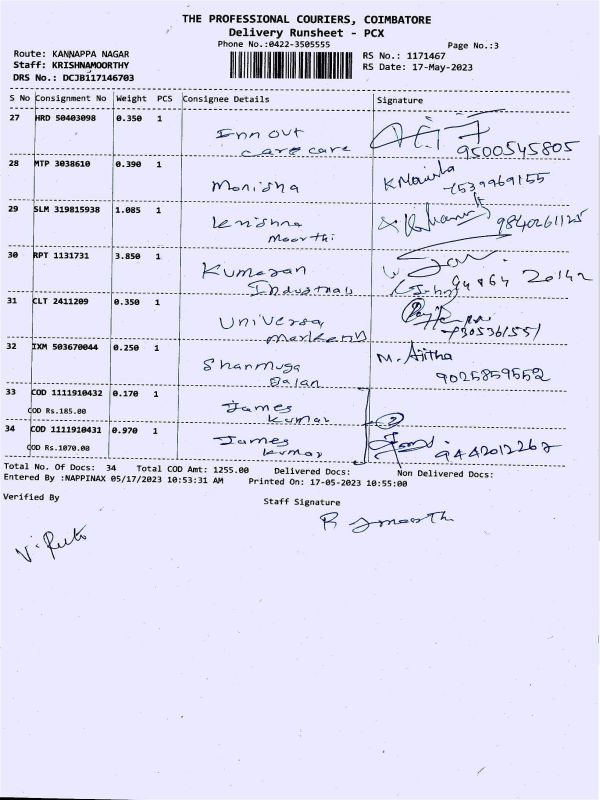 THE PROFESSIONAL COURIERS, COIMBATORE
Delivery Runsheet - PCX
Phone No.:0422-3505555
Page No.:3
Route: KANNAPPA NAGAR
RS No.: 1171467
Staff: KRISHNAMOORTHY
RS Date: 17-May-2023
DRS No.: DCJB117146703
S No Consignment No Weight PCS Consignee Details Signature
27 HRD 50403098 0.350 1
Inn out
care care
9500545805
28 MTP 3038610 0.390 1
Monisha
7539969155
29 SLM 319815938 1.085 1
Krishna
Moorthi
9840261125
30 RPT 1131731 3.850 1
Kumaran
Industrials
94864 20142
31 CLT 2411209 0.350 1
Universa
7305361551
32 IXM 503670044 0.250 1
Shanmuga
M. Ajitha
9025859552
33 COD 1111910432 0.170 1
COD Rs.185.00
James
Kumar
34 COD 1111910431 0.970 1
COD Rs.1070.00
James
Kumar
9442012267
Total No. Of Docs: 34 Total COD Amt: 1255.00 Delivered Docs: Non Delivered Docs:
Entered By :NAPPINAX 05/17/2023 10:53:31 AM Printed On: 17-05-2023 10:55:00
Verified By
Staff Signature